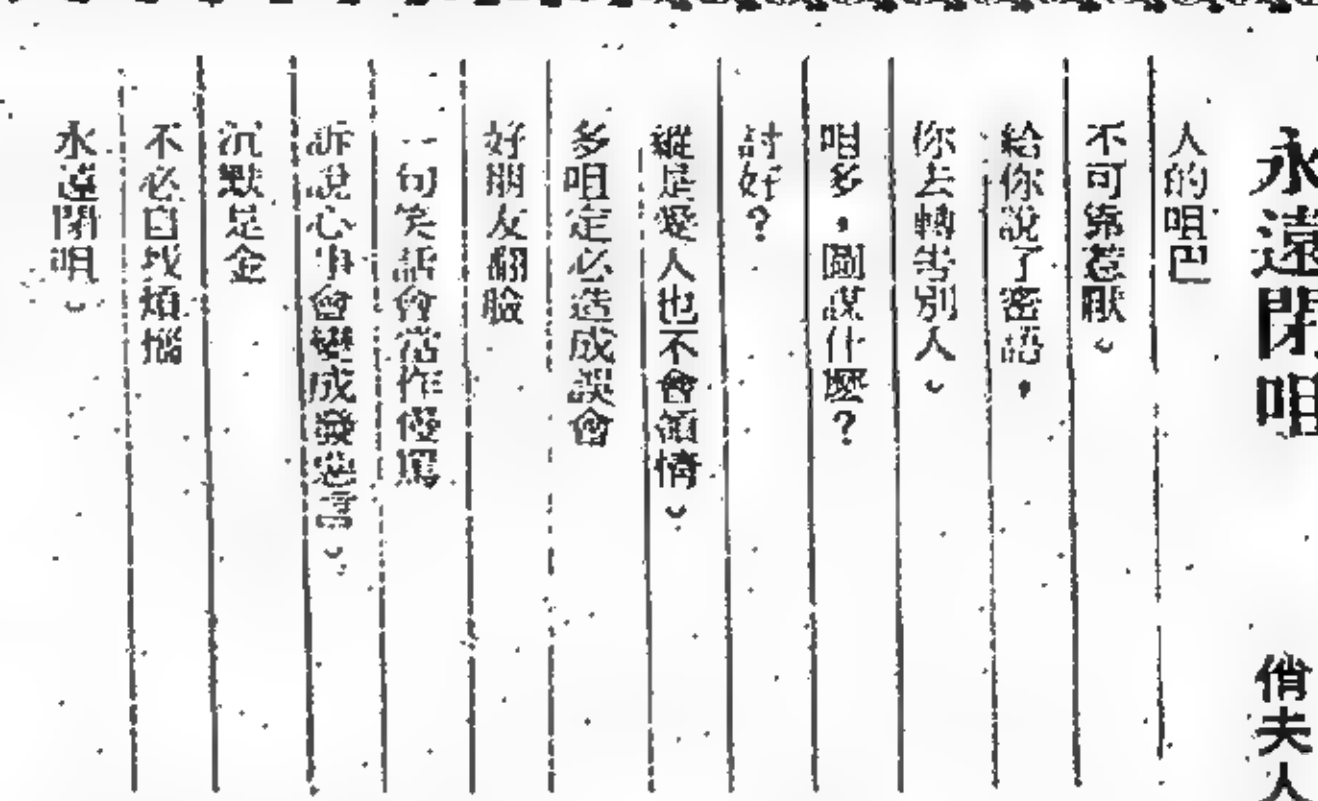 永遠閉咀
俏夫人
人的咀巴
不可第惹厭。
給你說了密語，
你去轉告別人。
咀多，圖謀什麼？
討好？
縱是愛人也不會領情。
多咀定必造成誤會
好朋友翻臉
一句笑話會當作侵罵
訴說心事會變成發惡言。
沉默是金
不必自找煩惱
永遠閉咀。